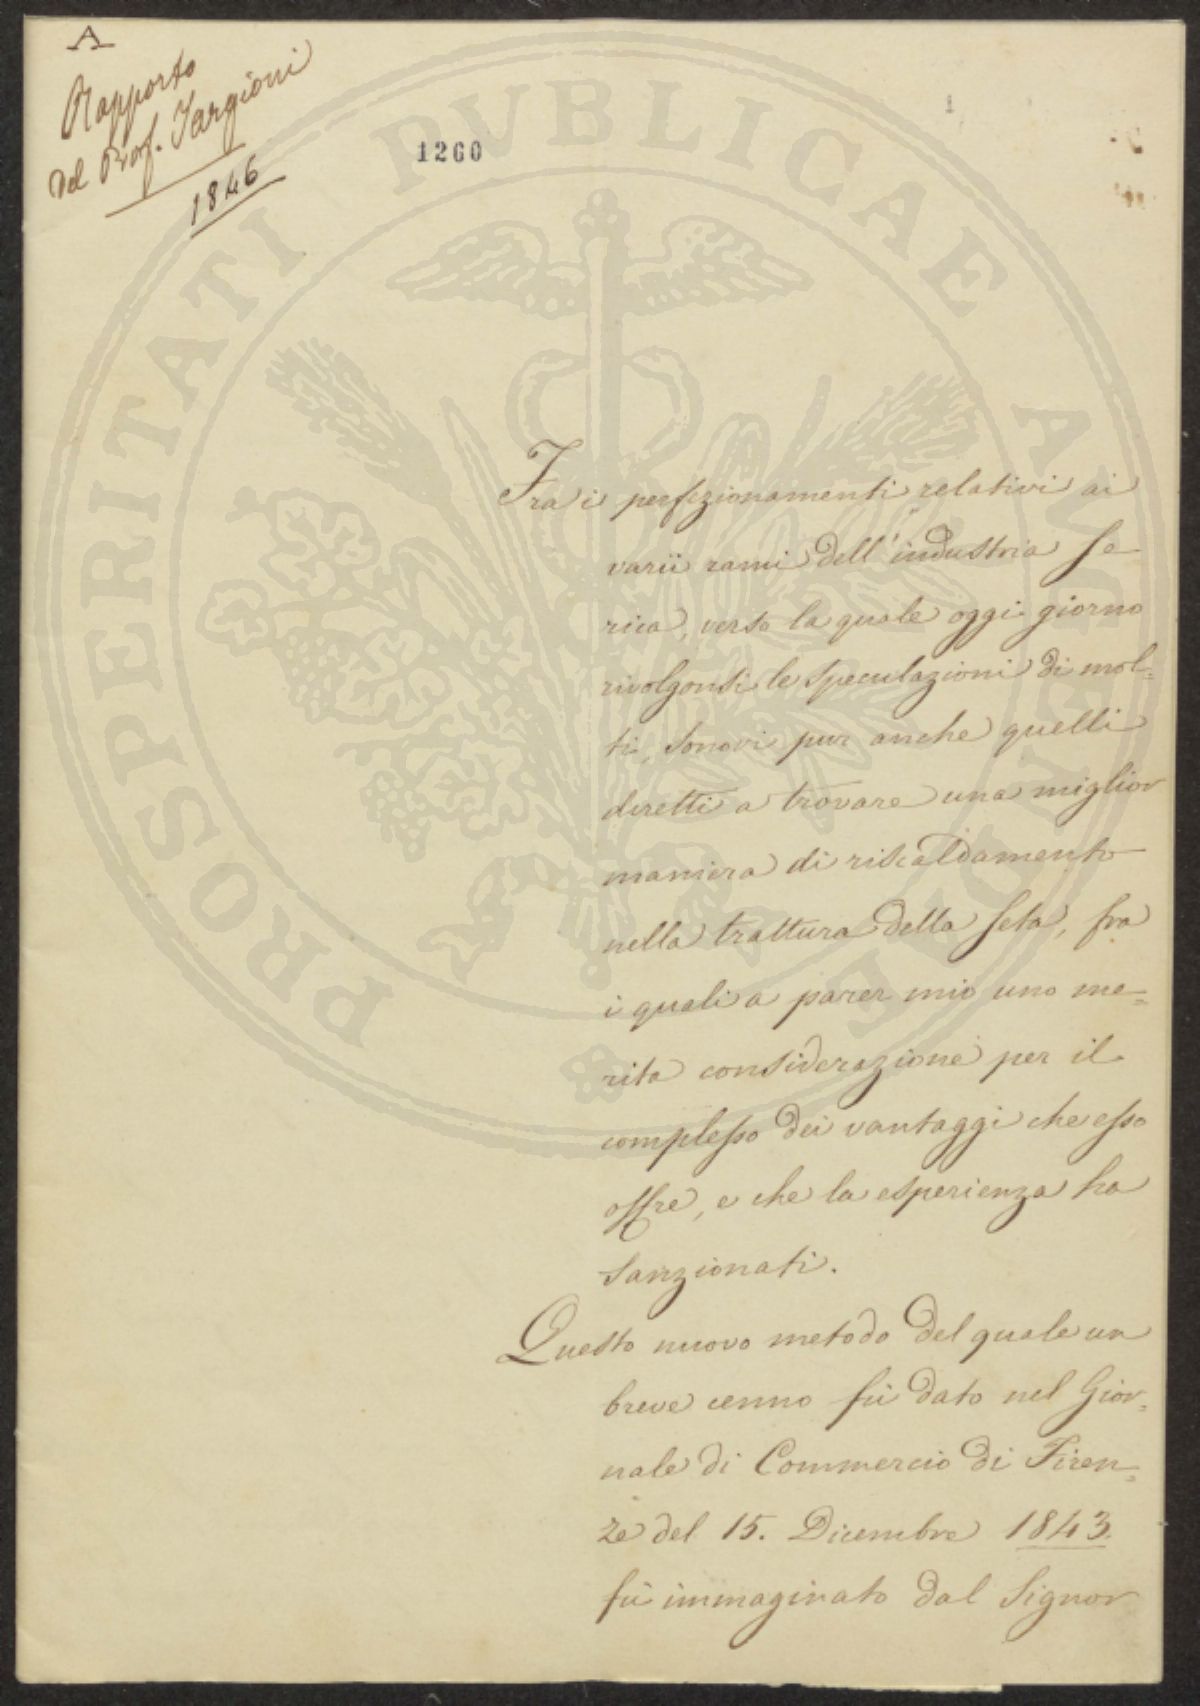 A
Rapporto
del Prof. Targioni
1846
1260
1
PROSPERITATI PVBLICAE AVGENDAE
Fra i perfezionamenti relativi ai
varii rami dell'industria se-
rica, verso la quale oggi giorno
rivolgonsi le speculazioni di mol=
ti, sonovi pur anche quelli
diretti a trovare una miglior
maniera di riscaldamento
nella trattura della seta, fra
i quali a parer mio uno me=
rita considerazione per il
complesso dei vantaggi che esso
offre, e che la esperienza ha
sanzionati.
Questo nuovo metodo del quale un
breve cenno fù dato nel Gior=
nale di Commercio di Firen=
ze del 15. Dicembre 1843.
fù immaginato dal Signor